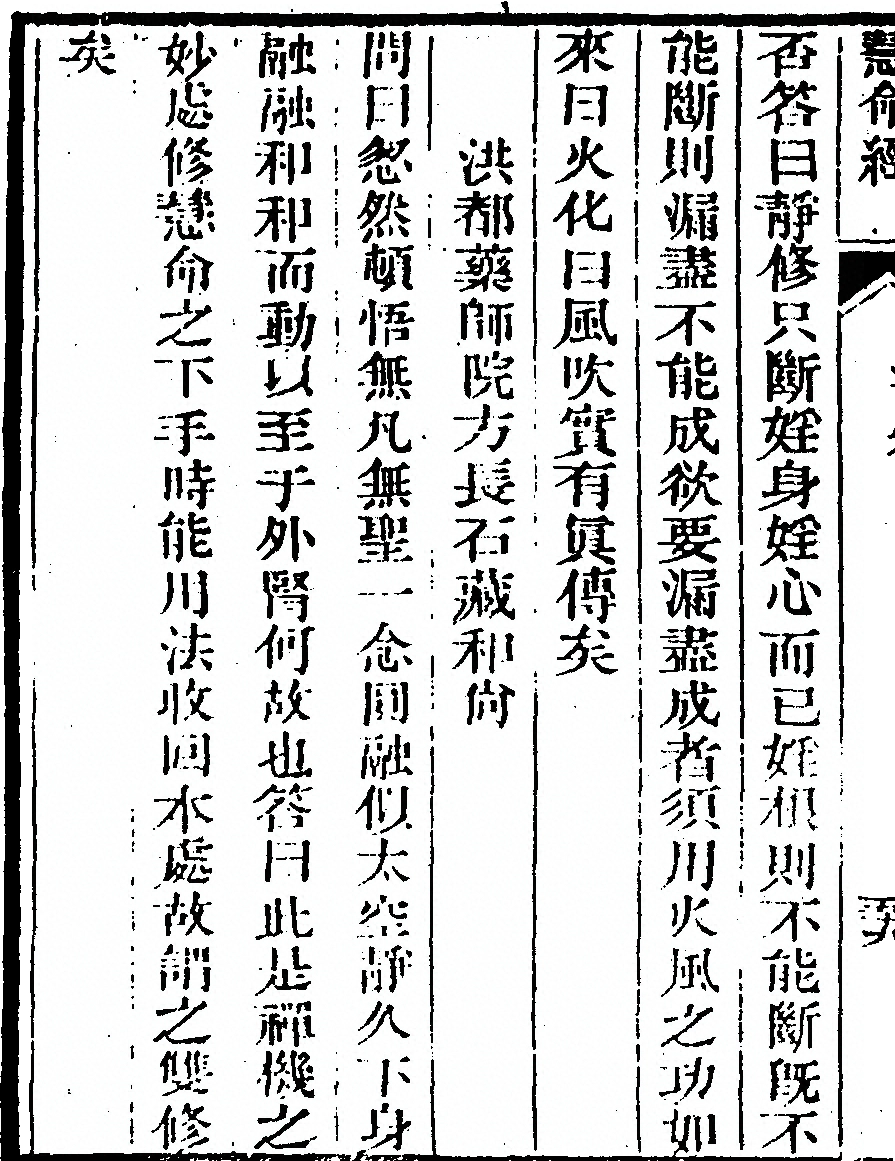 慧命經
否答曰靜修只斷婬身婬心而已婬根則不能斷旣不
能斷則漏盡不能成欲要漏盡成者須用火風之功如
來曰火化曰風吹實有眞傳矣
洪都藥師院方長石藏和尚
問曰忽然頓悟無凡無聖一念圓融似太空靜久下身
融融和和而動以至于外腎何故也答曰此是禪機之
妙處修慧命之下手時能用法收回本處故謂之雙修
矣